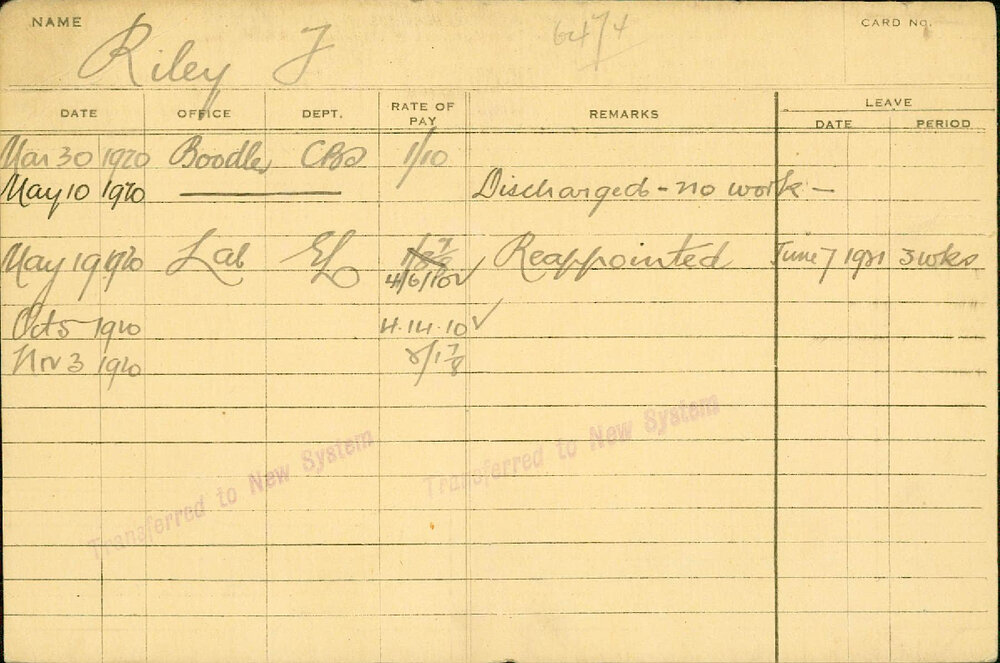 NAME
Riley J
6474
CARD No.
DATE OFFICE DEPT. RATE OF PAY REMARKS LEAVE
DATE PERIOD
Mar 30 1920 Boodle 1/10
May 10 1920 Discharged - no work -
May 19 1920 Lab EL 4/6/10 ✓ Reappointed June 7 1921 3 wks
Oct 5 1920 4.14.10 ✓
Nov 3 1920 2/1 7/8
Transferred to New System
Transferred to New System